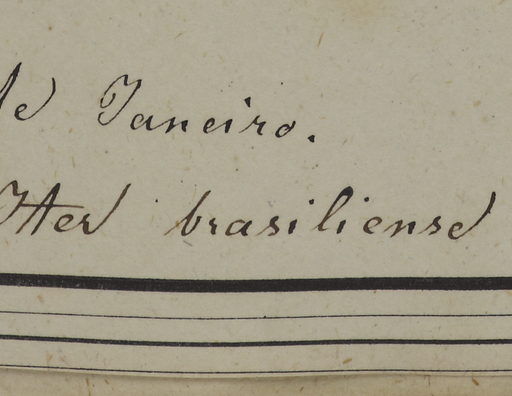 de Janeiro.
Iter brasiliense